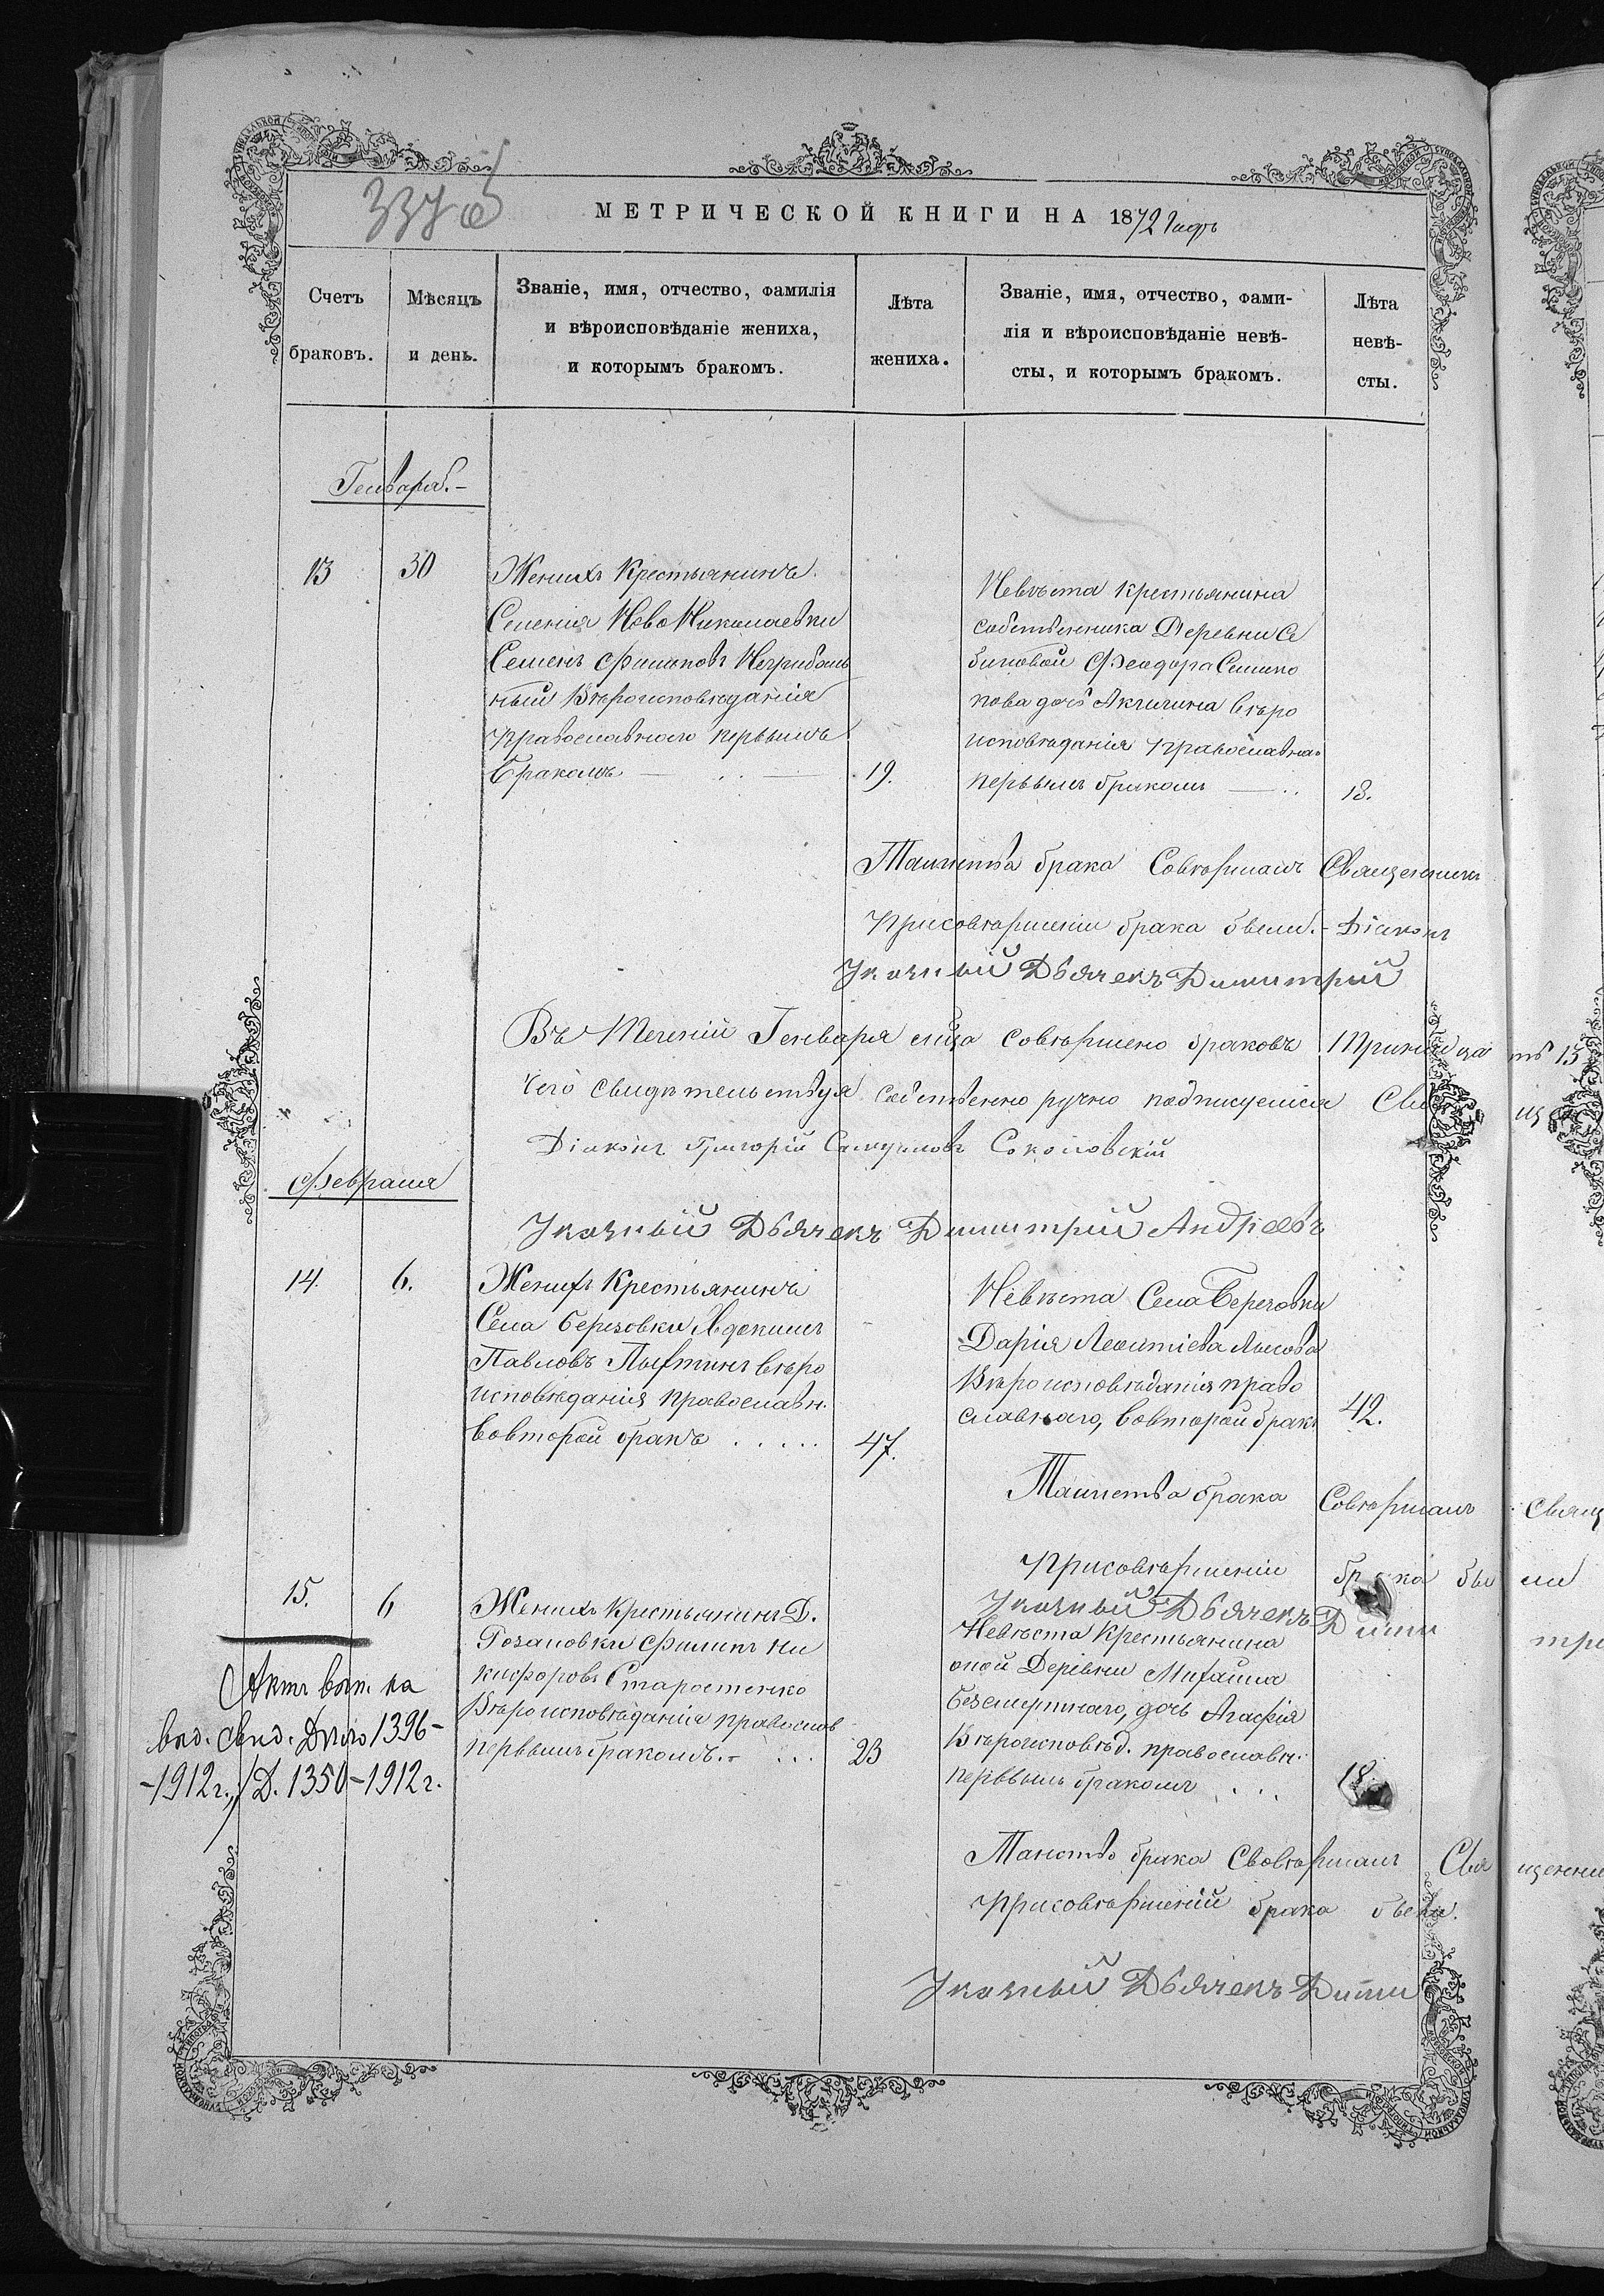 337 об
МЕТРИЧЕСКОЙ КНИГИ НА 1872 Годъ
Счетъ браковъ.
Мѣсяцъ и день.
Званіе, имя, отчество, фамилія
и вѣроисповѣданіе жениха,
и которымъ бракомъ.
Лѣта жениха.
Званіе, имя, отчество, фами-
лія и вѣроисповѣданіе невѣ-
сты, и которымъ бракомъ.
Лѣта невѣ-
сты.
Генваря.-
13
30
Женихъ Крестьянинъ
Селенія НовоНиколаевки
Семенъ Филиповъ
ный Вѣроисповѣданія
православнаго первымъ
бракомъ
19.
Невѣста крестьянина
собственника Деревни
Феодора Симко
нова дочь Акилина вѣро
исповѣданія православна
первымъ бракомъ
18.
Таинства брака Совѣршалъ Священникъ
Присовѣршеніи брака были.- Діаконъ
Указный Дьячекъ Димитрій
Въ Теченіи Генваря мца совѣршено браковъ Тринадцать 13
Чего свидѣтельствуя собственно ручно подписуемся Свящ
Діаконъ Григорій Самуиловъ Соколовскій
Февраля
Указный Дьячекъ Димитрій Андреевъ
14.
6.
Женихъ Крестьянинъ
Села Березовки Авдокимъ
Павловъ вѣро
исповѣданія православн.
вовторой бракъ . . . . .
47.
Невѣста Села Березовки
Дарія Леонтіева Лысова
Вѣроисповѣданія право
славнаго, вовторой бракъ
42.
Таинства брака Совѣршалъ Свящ
Присовѣршеніи брака были
Указный Дьячекъ Дими три
15.
6
Женихъ Крестьянинъ Д.
Филипъ Ни
кифоровъ Старостенко
Вѣроисповѣданія православ
первымъ бракомъ.- . . .
23
Невѣста Крестьянина
оной Деревни Михаила
Безсмертнаго, дочь Агафія
Вѣроисповѣд. православн.
первымъ бракомъ . . .
18.
Актъ вып. на
выд. свид. Дѣло 1396-
-1912г., Д. 1350-1912г.
Таинство брака Совѣршалъ Священни
Присовѣршеній брака были.
Указный Дьячекъ Дими